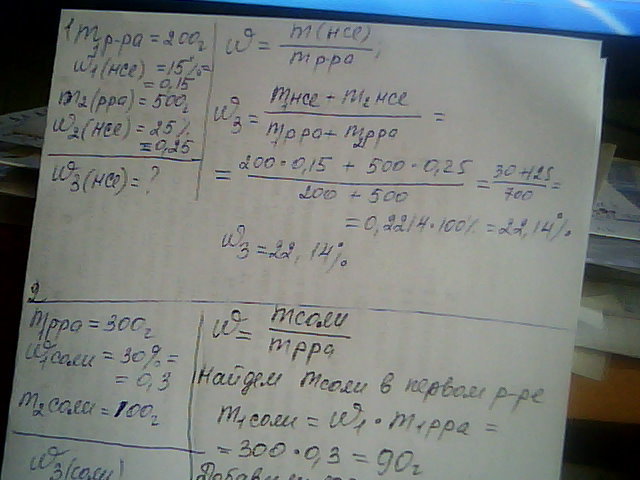 1 m₁ р-ра = 200г
w₁(нсе) = 15% =
= 0,15
m₂(рра) = 500г
w₂(нсе) = 25%
= 0,25
w₃(нсе) = ?
w = m(нсе) / mрра ;
w₃ = m₁нсе + m₂нсе / m₁рра + m₂рра =
= 200·0,15 + 500·0,25 / 200 + 500 = 30+125 / 700 =
= 0,2214·100% = 22,14%.
w₃ = 22,14%.
2
m₁рра = 300г
w₁соли = 30% =
= 0,3
m₂соли = 100г
w₃(соли)
w = mсоли / mрра
Найдем mсоли в первом р-ре
m₁соли = w₁ · m₁рра =
= 300·0,3 = 90г